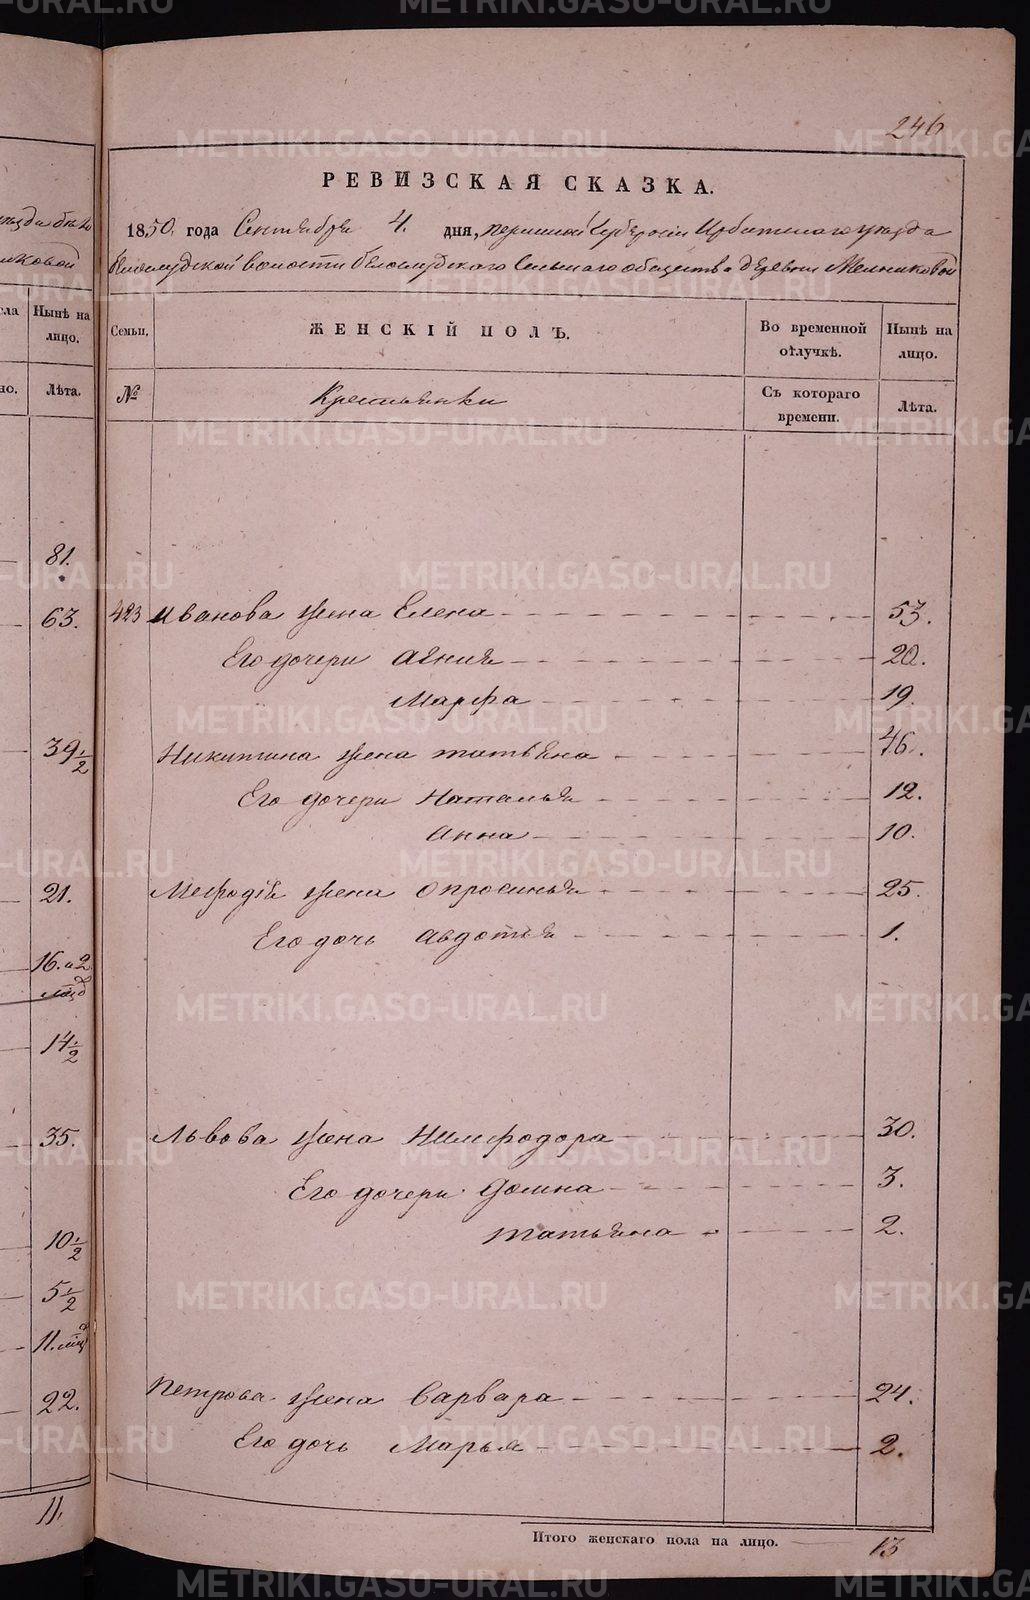 246
РЕВИЗСКАЯ СКАЗКА.
1850 года Сентября 4. дня, пермской губернии Ирбитскаго уезда
Белослудской волости Белослудскаго Сельнаго общества деревни Мельниковой
Семьи. ЖЕНСКІЙ ПОЛЪ. Во временной отлучкѣ. Нынѣ на лицо.
№ Крестьянки Съ котораго времени. Лѣта.
423 Иванова жена Елена 53.
Его дочери Агния 20.
Марфа 19.
Никитина жена татьяна 46.
Его дочери Наталья 12.
Анна 10.
Мефодій жена Опросинья 25.
Его дочь Авдотья 1.
Львова жена Нимфодора 30.
Его дочери Домна 3.
татьяна 2.
Петрова жена Варвара 24.
Его дочь Марья 2.
Итого женскаго пола на лицо. 13
Нынѣ на лицо.
Лѣта.
81.
63.
39 1/2
21.
16. и 2
14 1/2
35.
10 1/2
5 1/2
11.
22.
11.
METRIKI.GASO-URAL.RU